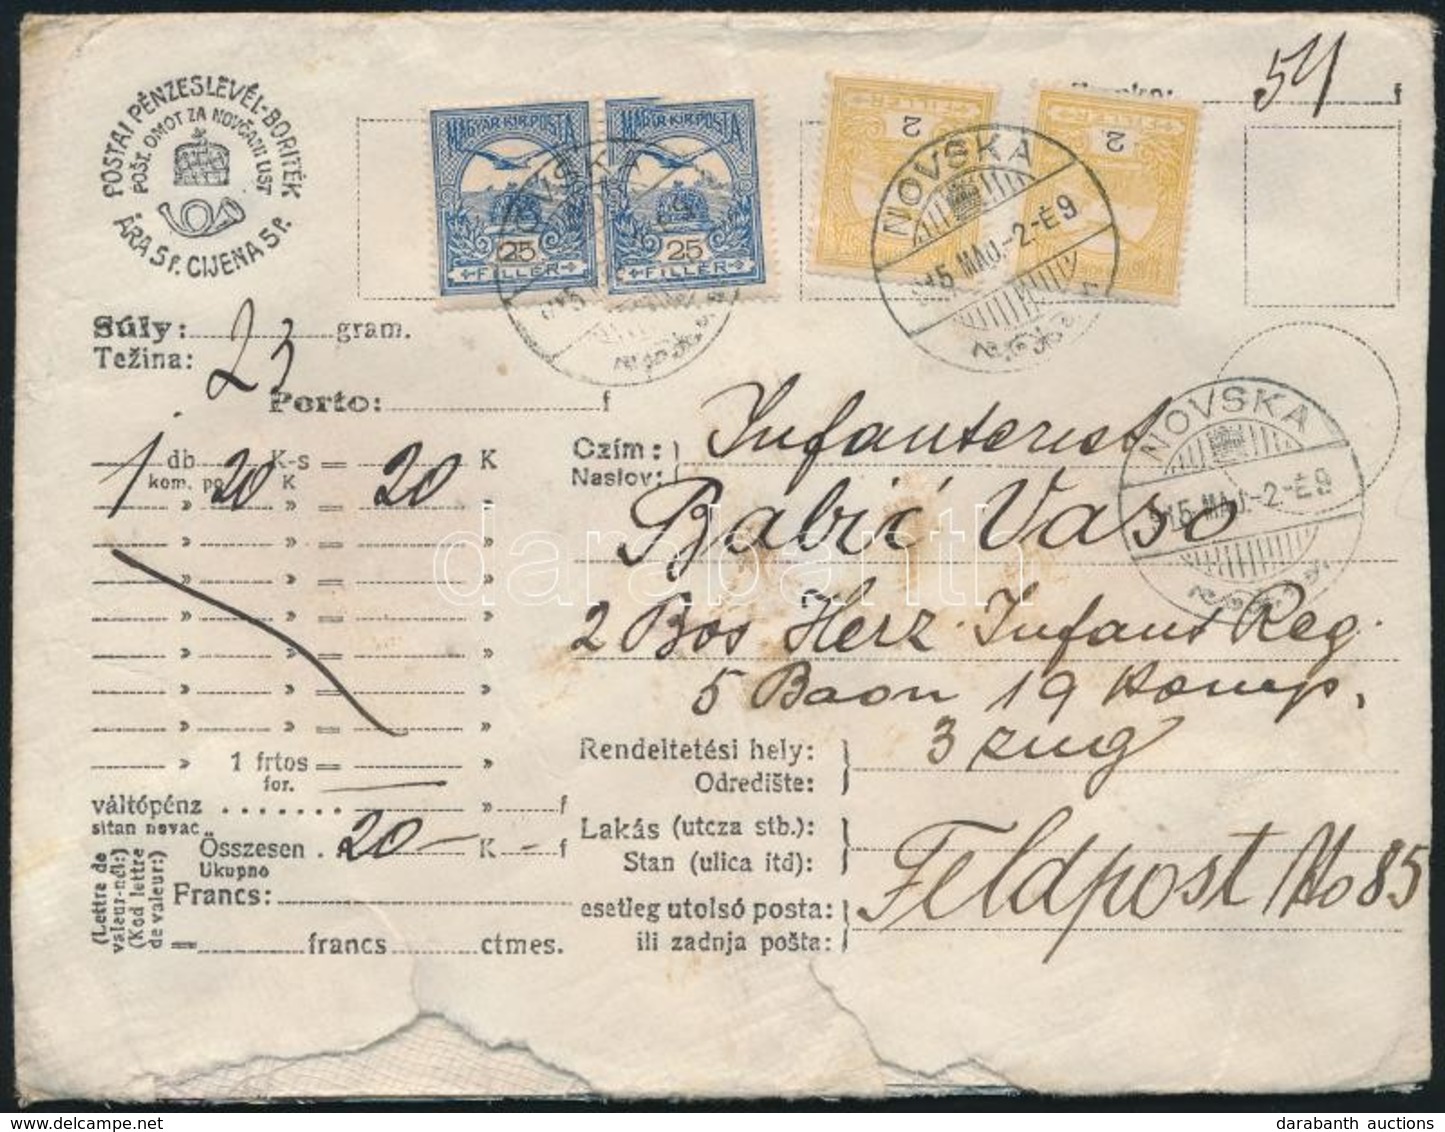 POSTAI PÉNZESLEVÉL-BORITÉK
POŠT. OMOT ZA NOVČANI LIST
ÁRA 5 f. CIJENA 5 f.
MAGYAR KIR. POSTA
25
FILLÉR
MAGYAR KIR. POSTA
25
FILLÉR
2
FILLÉR
2
FILLÉR
NOVSKA
915 MAJ.-2-É9
54 f
Súly: 23 gram.
Težina:
Porto: f
NOVSKA
915 MAJ.-2-É9
1 db 20 K-s = 20 K
kom. po K
» » = »
» » = »
» » = »
» » = »
» » = »
» » = »
» » = »
» 1 frtos = »
for.
váltópénz ....... » f
sitan novac
Összesen . 20 – K – f
Ukupno
(Lettre de valeur-nél:)
(Kod lettre de valeur:)
Francs:
= francs ctmes.
Czím: Infanterist
Naslov:
Babić Vaso
2 Bos Herz. Infant Reg.
5 Baon 19 Komp.
3 zug
Rendeltetési hely:
Odredište:
Lakás (utcza stb.):
Stan (ulica itd):
esetleg utolsó posta: Feldpost No 85
ili zadnja pošta:
darabanth
delcampe.net
darabanth auctions